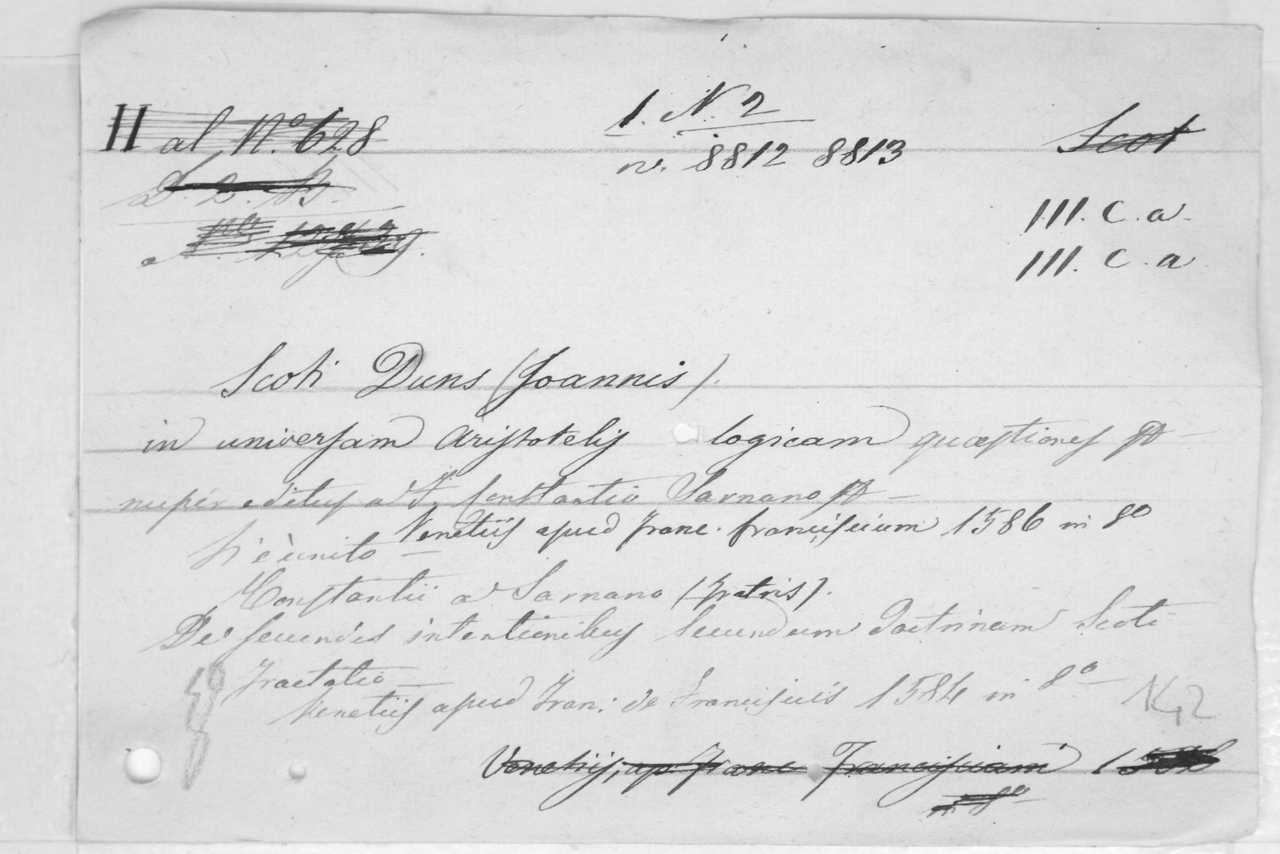 H al N.º 628
1. N. 2
n. 8812 8813
Scot
III. C. a
III. C. a
Scoti Duns (Joannis).
in universam Aristotelis logicam quæstiones
nuper editus a Constantio Sarnano
Venetiis apud Franc. Franciscium 1586 in 8º
Vi è unito —
Constantii a Sarnano (Fratris).
De secundis intentionibus secundum doctrinam Scoti
Tractatio —
Venetiis apud Fran: de Franciscis 1584 in 8º —
Venetiis, ap Franc Franciscium
in 8º